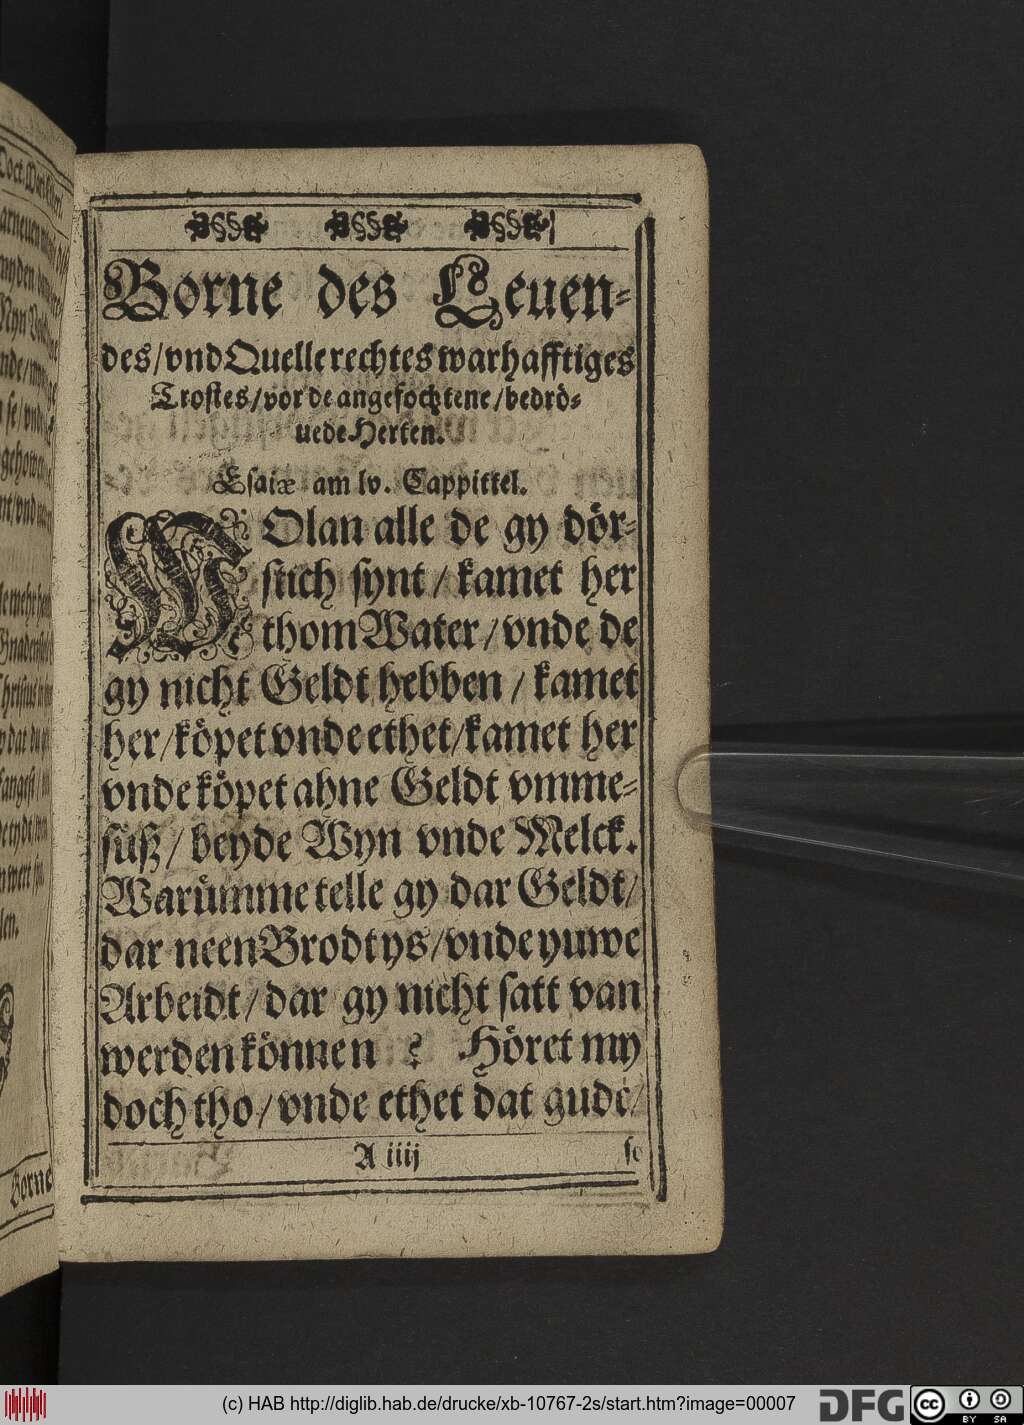 Borne des Leuen-
des/ vnd Quelle rechtes warhafftiges
Trostes/ vor de angefochtene/ bedrö-
uede Herten.
Esaiæ am lv. Cappittel.
WOlan alle de gy dör-
stich synt/ kamet her
thom Water/ vnde de
gy nicht Geldt hebben/ kamet
her/ köpet vnde ethet/ kamet her
vnde köpet ahne Geldt vmme-
süß/ beyde Wyn vnde Melck.
Warümme telle gy dar Geldt/
dar neen Brodt ys/ vnde yuwe
Arbeidt/ dar gy nicht satt van
werden können? Höret my
doch tho/ vnde ethet dat gude/
A iiij
se
Borne
(c) HAB http://diglib.hab.de/drucke/xb-10767-2s/start.htm?image=00007
DFG
cc
BY SA